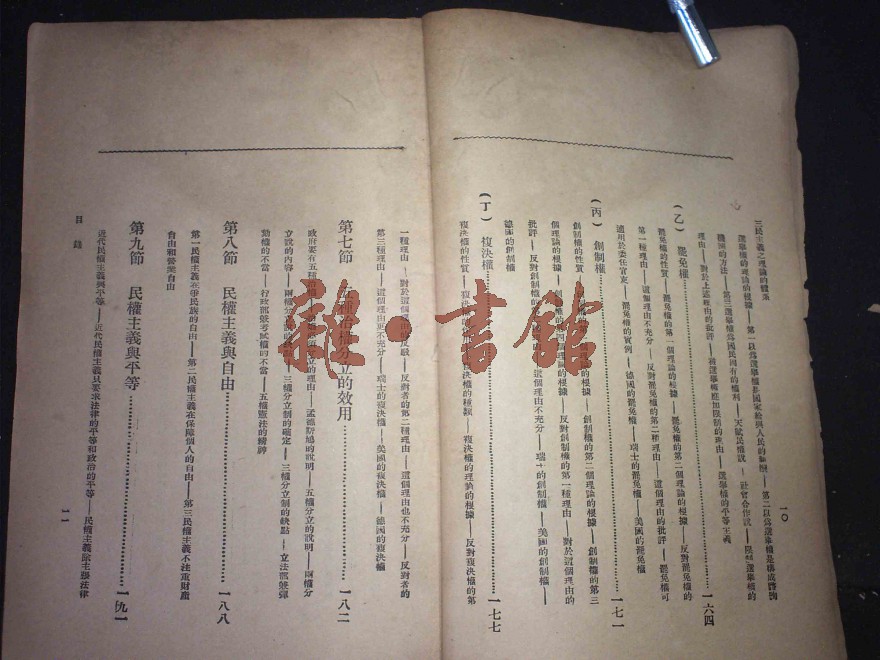 三民主義之理論的體系
一〇
選舉權的理論的根據——第一以為選舉權是國家給與人民的——第二以為選舉權是構成
機關的方法——第三選舉權為國民固有的權利——天賦民權說——社會合作說——限制選舉權的
理由——對於上述理由的批評——選舉權應加限制的理由——選舉權的平等主義
(乙) 罷免權 一六四
罷免權的性質——罷免權的第一個理論的根據——罷免權的第二個理論的根據——反對罷免權的
第一種理由——這個理由不充分——反對罷免權的第二種理由——這個理由的批評——罷免權可
適用於委任官吏——罷免權的實例——德國的罷免權——瑞士的罷免權——美國的罷免權
(丙) 創制權 一七一
創制權的性質 的根據——創制權的第二個理論的根據——創制權的第三
個理論的根據——創制權的 理論的根據——反對創制權的第一種理由——對於這個理由的
批評——反對創制權的 這個理由不充分——瑞士的創制權——美國的創制權——
德國的創制權
(丁) 複決權 一七七
複決權的性質——複決權 複決權的種類——複決權的理論的根據——反對複決權的第
一種理由——對於這個 反駁——反對者的第二種理由——這個理由也不充分——反對者的
第三種理由——這個理由更不充分——瑞士的複決權——美國的複決權——德國的複決權
第七節 五種治權分立的效用 一八二
政府要有五種治權 立的理由——孟德斯鳩的說明——五權分立的說明——兩權分
立說的內容——兩權分立 三權分立制的確定——三權分立制的缺點——立法部兼彈
劾權的不當——行政部兼考試權的不當——五權憲法的精神
第八節 民權主義與自由 一八八
第一民權主義在爭民族的自由——第二民權主義在保障個人的自由——第三民權主義不注重財產
自由和營業自由
第九節 民權主義與平等 一九一
近代民權主義與平等——近代民權主義只要求法律的平等和政治的平等——民權主義除主張法律
目錄
一一
雜·書館